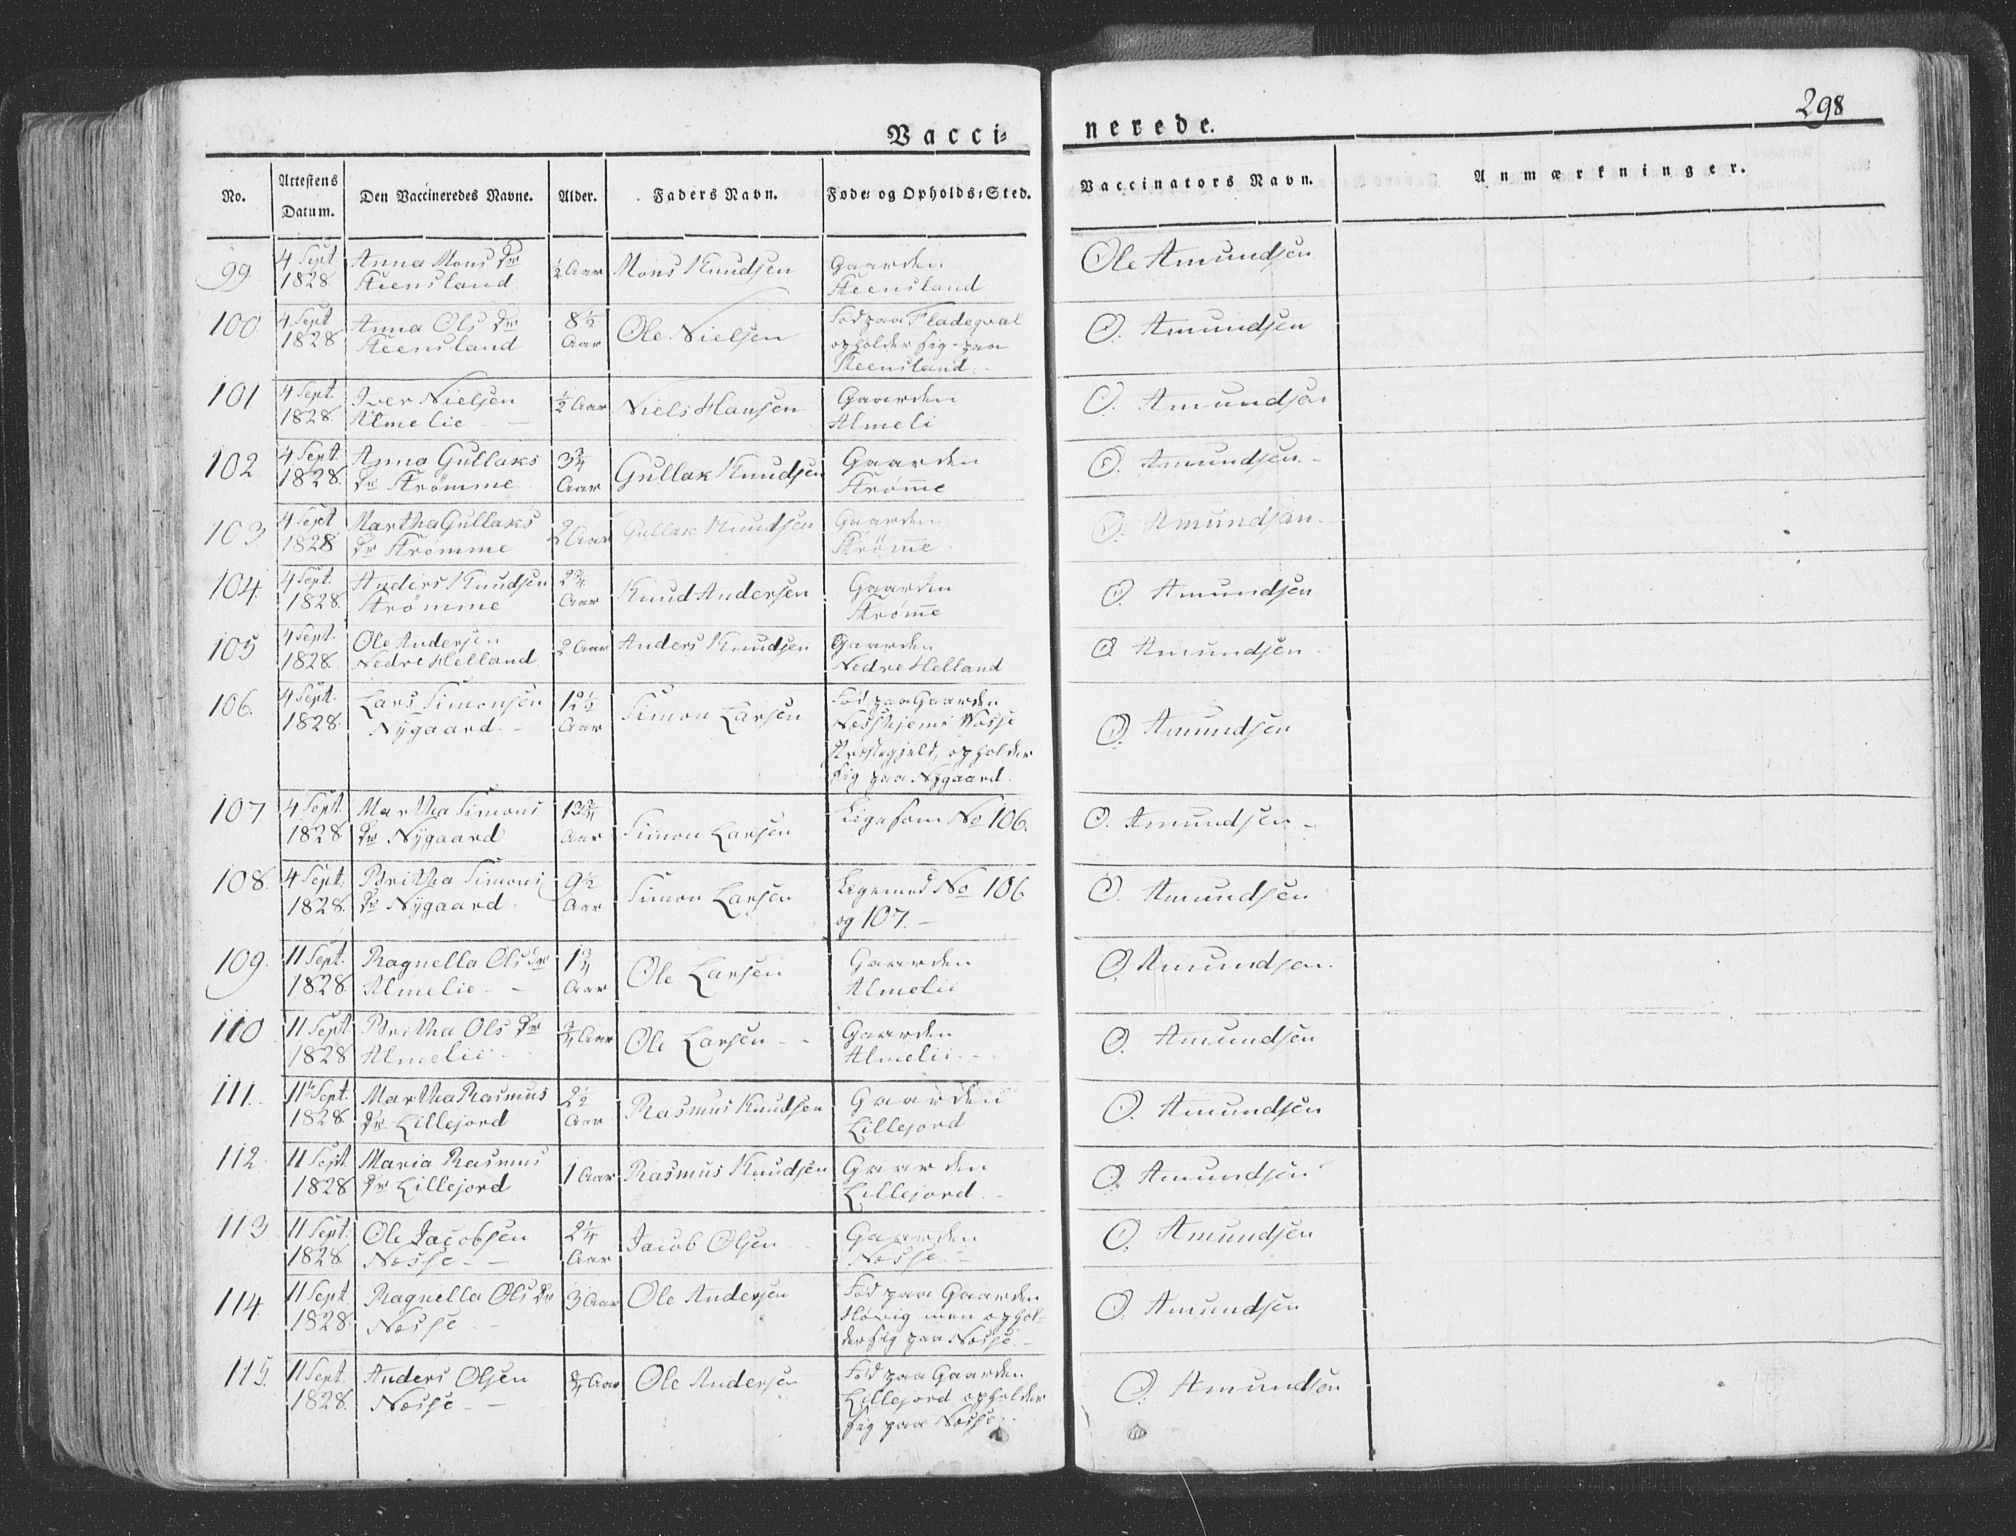 298
Vacci= nerede.
No. Attestens Datum. Den Vaccineredes Navne. Alder. Faders Navn. Føde= og Opholds=Sted. Vaccinators Navn. Anmærkninger.
99. 4 Sept 1828 Anna Mons Dr Steensland. ½ Aar Mons Knudsen Gaarden Steensland Ole Amundsen
100 4 Sept 1828 Anna Ols Dr Steensland 8½ Aar Ole Nielsen Fød paa Fladeqval opholder sig paa Steensland. O. Amundsen
101 4 Sept 1828. Iver Nielsen Almelie ½ Aar Niels Hansen Gaarden Almeli O. Amundsen
102 4 Sept. 1828. Anna Gullaks Dr Strømme 3¾ Aar Gullak Knudsen Gaarden Strømme O. Amundsen.
103 4 Sept 1828 Martha Gullaks Dr Strømme Aar Gullak Knudsen Gaarden Strømme. O. Amundsen.
104. 4 Sept. 1828. Anders Knudsen Strømme Aar Knud Andersen Gaarden Strømme O. Amundsen
105 4 Sept. 1828. Ole Andersen Nedre Helland 2 Aar Anders Knudsen Gaarden Nedre Helland O. Amundsen.
106. 4 Sept. 1828. Lars Simonsen Nÿgaard. 12½ Aar Simon Larsen Fød paa Gaarden Wosse Præstegjeld, opholder sig paa Nÿgaard. O. Amundsen
107 4 Sept. 1828 Martha Simons Dr Nÿgaard Aar Simon Larsen Ligesom No 106. O. Amundsen
108. 4 Sept. 1828. Britha Simons Dr Nÿgaard 9½ Aar Simon Larsen Ligemed No 106 og 107. O. Amundsen
109. 11 Sept. 1828. Ragnella Ols Dr Almelie 1¾ Aar Ole Larsen Gaarden Almelii O. Amundsen.
110 11 Sept 1828 Britha Ols Dr Almelii ¾ Aar Ole Larsen Gaarden Almelii. O. Amundsen
111. 11te Sept. 1828. Martha Rasmus Dr Lillejord 2½ Aar Rasmus Knudsen Gaarden Lillejord O. Amundsen
112 11 Sept 1828 Maria Rasmus Dr Lillejord 1 Aar Rasmus Knudsen Gaarden Lillejord. O. Amundsen
113 11 Sept. 1828. Ole Jacobsen Næsse. 2¼ Aar Jacob Olsen Gaarden Næsse. O. Amundsen
114. 11 Sept 1828. Ragnella Ols Dr Næsse 3 Aar Ole Andersen Fød paa Gaarden Høvig men ophol= der sig paa Næsse. O. Amundsen
115. 11 Sept. 1828. Anders Olsen Næsse. ¾ Aar Ole Andersen Fød paa Gaarden Lillejord opholder sig paa Næsse. O. Amundsen